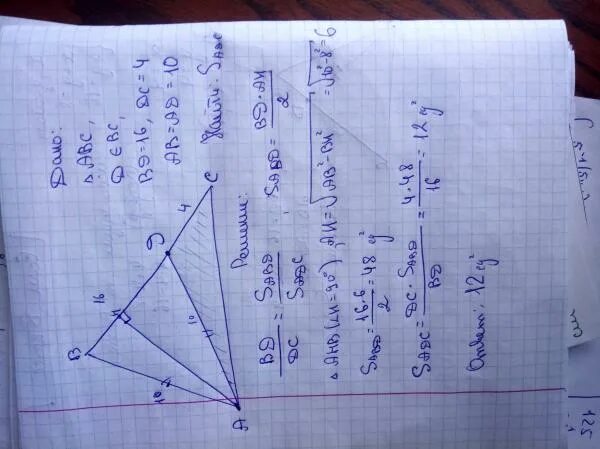 Дано:
△ABC,
D ∈ BC,
BD=16, DC=4
AB=AD=10
Найти: S_ADC
B
16
H
D
4
C
10
10
A
Решение:
BD/DC = S_ABD/S_ADC ; S_ABD = BD·AH/2
△AHB (∠H=90°), AH=√(AB²-BH²) = √(10²-8²) =6
S_ABD = 16·6/2 = 48 ед²
S_ADC = DC·S_ABD/BD = 4·48/16 = 12 ед²
Ответ: 12 ед²
125